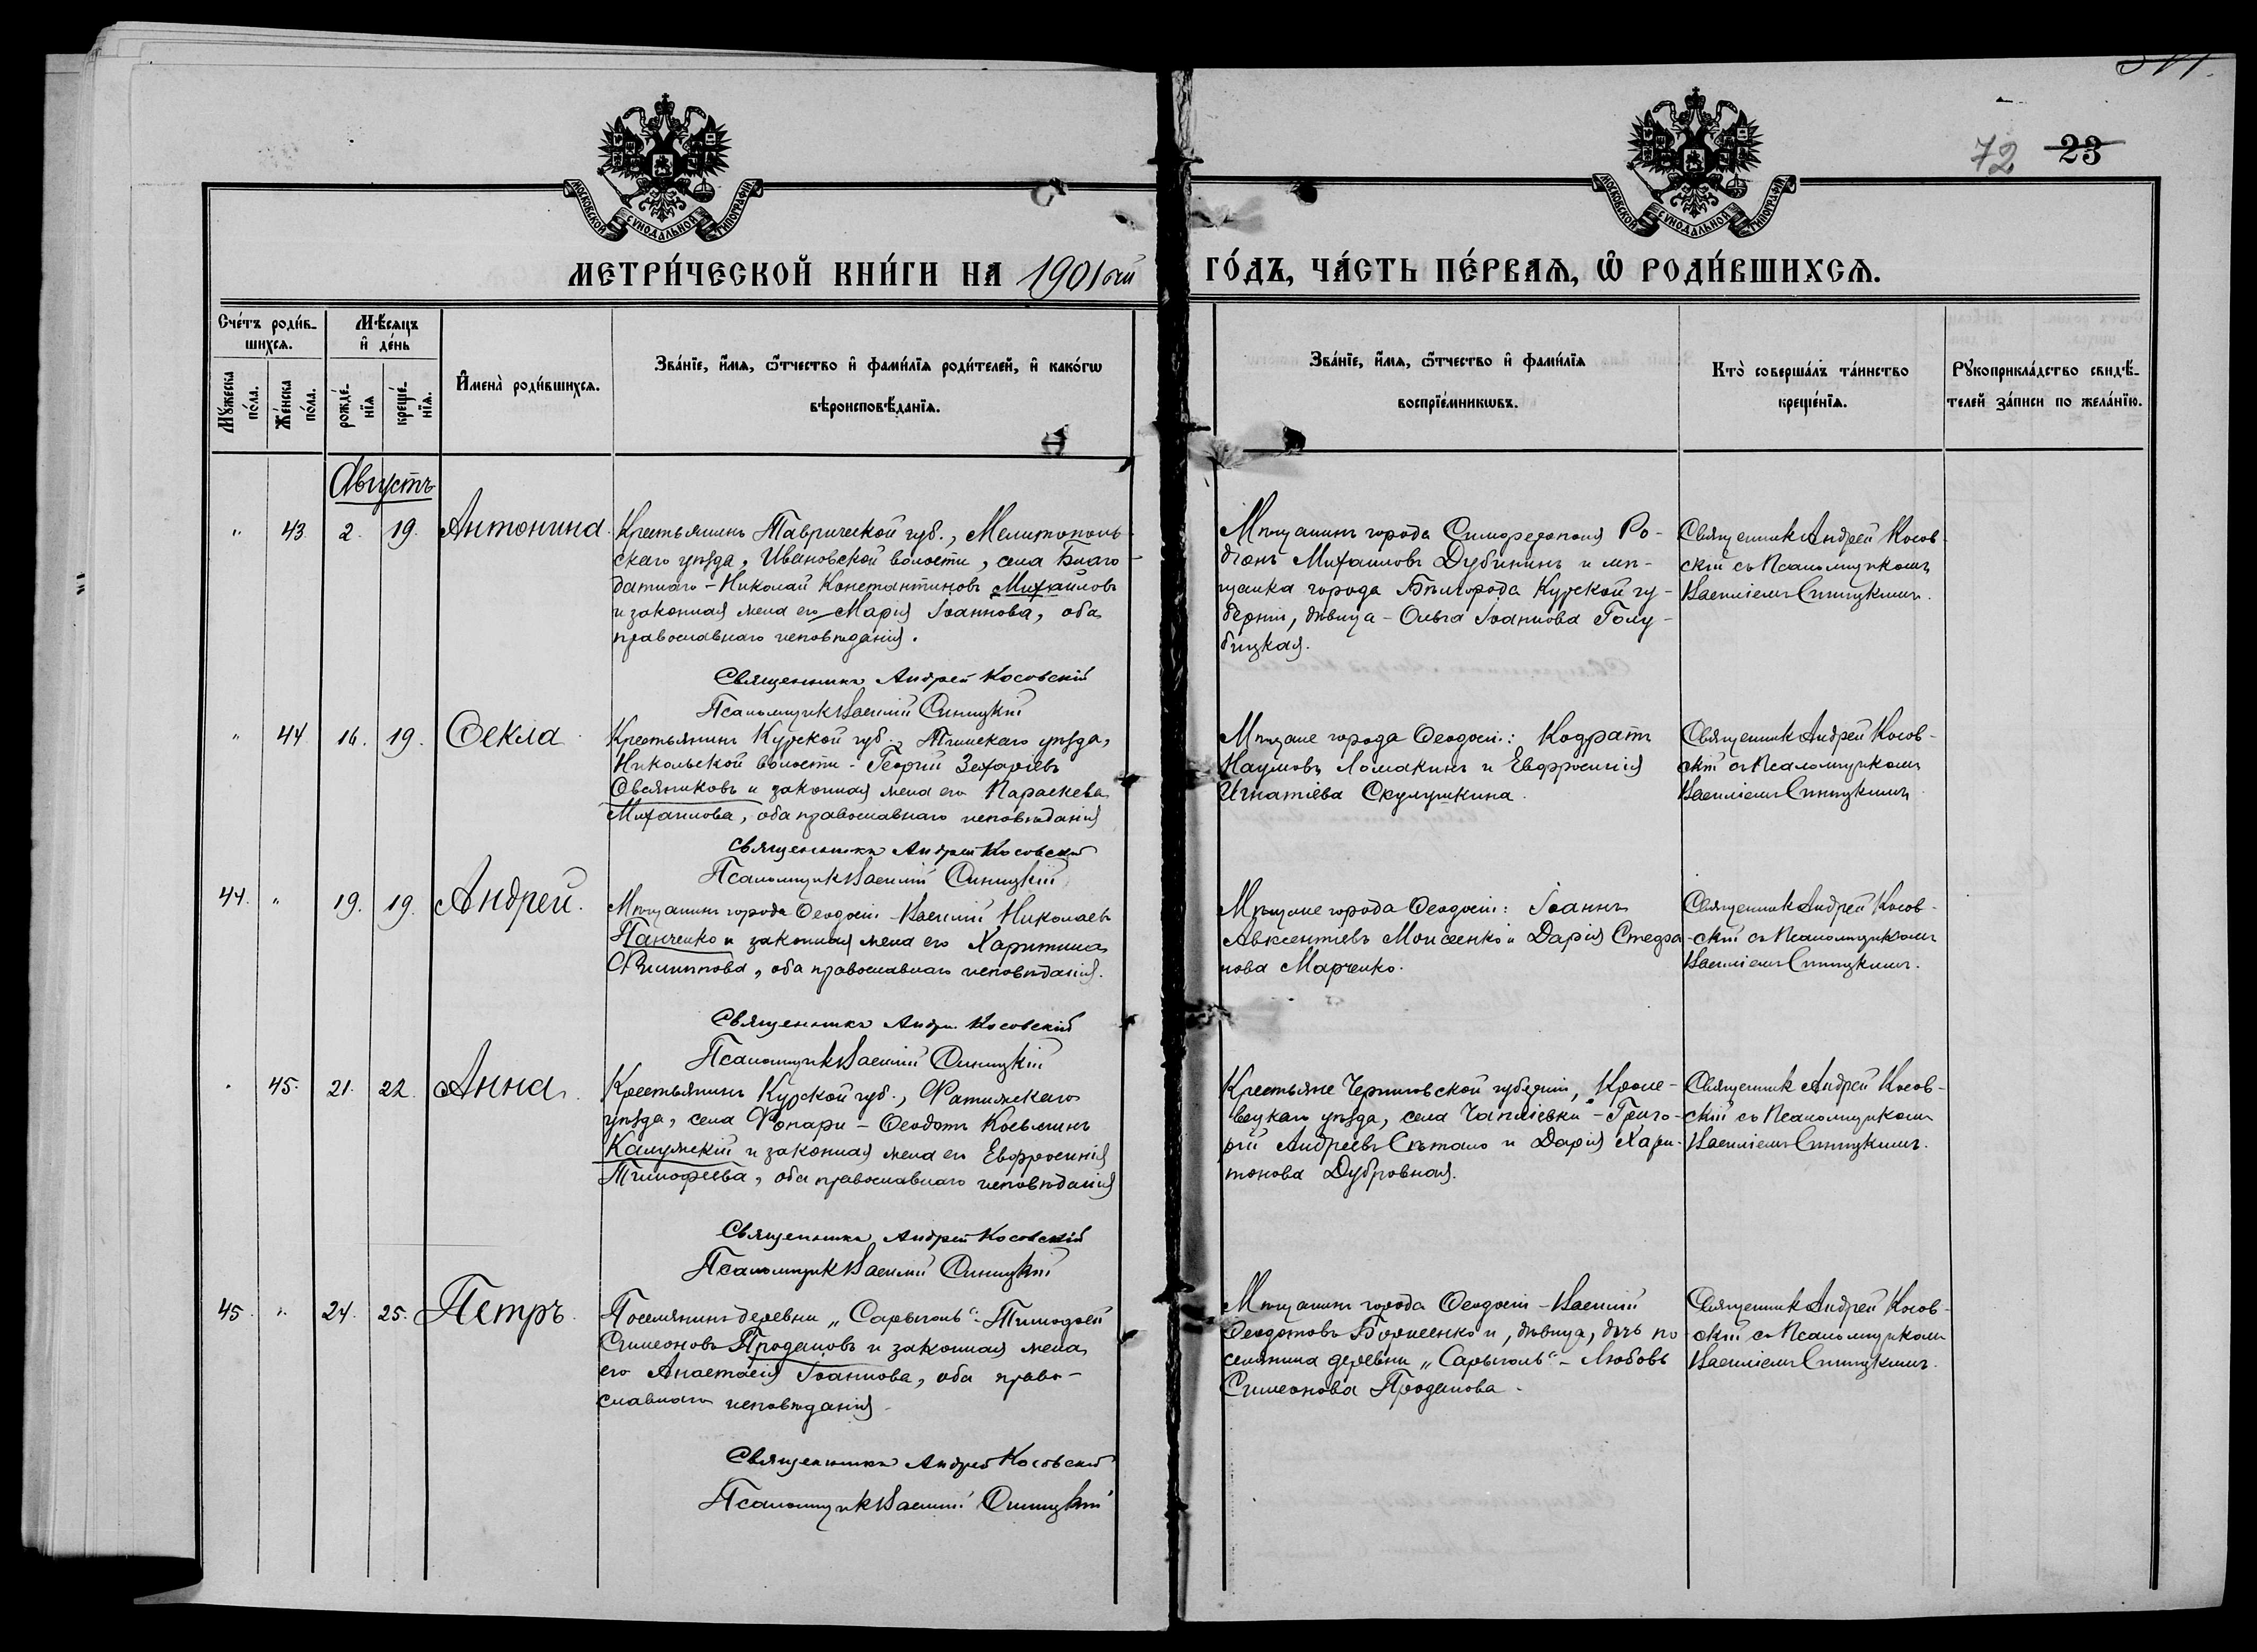 72 23
МОСКОВСКОЙ СѴНОДАЛЬНОЙ ТИПОГРАФІИ
МОСКОВСКОЙ СѴНОДАЛЬНОЙ ТИПОГРАФІИ
МЕТРИ́ЧЕСКОЙ КНИ́ГИ НА 1901ый ГО́ДЪ, ЧА́СТЬ ПЕ́РВАѦ, Ѡ҆ РОДИ́ВШИХСѦ.
Сче́тъ роди́в-
шихсѧ.
Мꙋ́жеска по́ла.
Же́нска по́ла.
Мѣ́сѧцъ и҆ де́нь
рожде́-нїѧ
креще́-нїѧ.
И҆мена̀ роди́вшихсѧ.
Зва́нїе, и҆́мѧ, ѻ҆́тчество и҆ фами́лїѧ роди́телей, и҆ како́гѡ
вѣроисповѣ́данїѧ.
Зва́нїе, и҆́мѧ, ѻ҆́тчество и҆ фами́лїѧ
воспрїе́мникѡвъ.
Кто̀ соверша́лъ та́инство
креще́нїѧ.
Рꙋкоприкла́дство свидѣ́-
телей за́писи по жела́нїю.
Августъ
" 43. 2. 19. Антонина.
Крестьянинъ Таврической губ., Мелитополь-
скаго уѣзда, Ивановской волости, села Благо-
датнаго - Николай Константиновъ Михайловъ
и законная жена его Марія Іоаннова, оба
православнаго исповѣданія.
Священникъ Андрей Косовскій
Псаломщикъ Василій Синицкій
Мѣщанинъ города Симферополя Ро-
діонъ Михаиловъ Дубининъ и мѣ-
щанка города Бѣлгорода Курской гу-
берніи, дѣвица - Ольга Іоаннова Голу-
бицкая.
Священникъ Андрей Косов-
скій съ Псаломщикомъ
Василіемъ Синицкимъ.
" 44 16. 19. Ѳекла
Крестьянинъ Курской губ., Тимскаго уѣзда,
Никольской волости - Георгій Захаріевъ
Овсянниковъ и законная жена его Параскева
Михаилова, оба православнаго исповѣданія
Священникъ Андрей Косовскій
Псаломщикъ Василій Синицкій
Мѣщане города Ѳеодосіи: Кодратъ
Наумовъ Ломакинъ и Евфросинія
Игнатіева
Священникъ Андрей Косов-
скій съ Псаломщикомъ
Василіемъ Синицкимъ
44. " 19. 19. Андрей.
Мѣщанинъ города Ѳеодосіи - Василій Николаевъ
Панченко и законная жена его Харитина
Филиппова, оба православнаго исповѣданія.
Священникъ Андрей Косовскій
Псаломщикъ Василій Синицкій
Мѣщане города Ѳеодосіи: Іоаннъ
Авксентіевъ Моисеенко и Дарія Стефа-
нова Марченко.
Священникъ Андрей Косов-
скій съ Псаломщикомъ
Василіемъ Синицкимъ.
" 45. 21. 22. Анна.
Крестьянинъ Курской губ., Фатежскаго
уѣзда, села - Ѳеодотъ Косьминъ
Калужскій и законная жена его Евфросинія
Тимофеева, оба православнаго исповѣданія
Священникъ Андрей Косовскій
Псаломщикъ Василій Синицкій
Крестьяне Черниговской губерніи, Кроле-
вецкаго уѣзда, села Чапліевки - Григо-
рій Андреевъ и Дарія Хари-
тонова Дубровная.
Священникъ Андрей Косов-
скій съ Псаломщикомъ
Василіемъ Синицкимъ.
45. " 24. 25. Петръ.
Поселянинъ деревни „Сарыголь": Тимофей
Симеоновъ Продановъ и законная жена
его Анастасія Іоаннова, оба право-
славнаго исповѣданія.
Священникъ Андрей Косовскій
Псаломщикъ Василій Синицкій
Мѣщанинъ города Ѳеодосіи - Василій
Ѳеодотовъ и, дѣвица, дочь по-
селянина деревни „Сарыголь" - Любовь
Симеонова Проданова.
Священникъ Андрей Косов-
скій съ Псаломщикомъ
Василіемъ Синицкимъ.